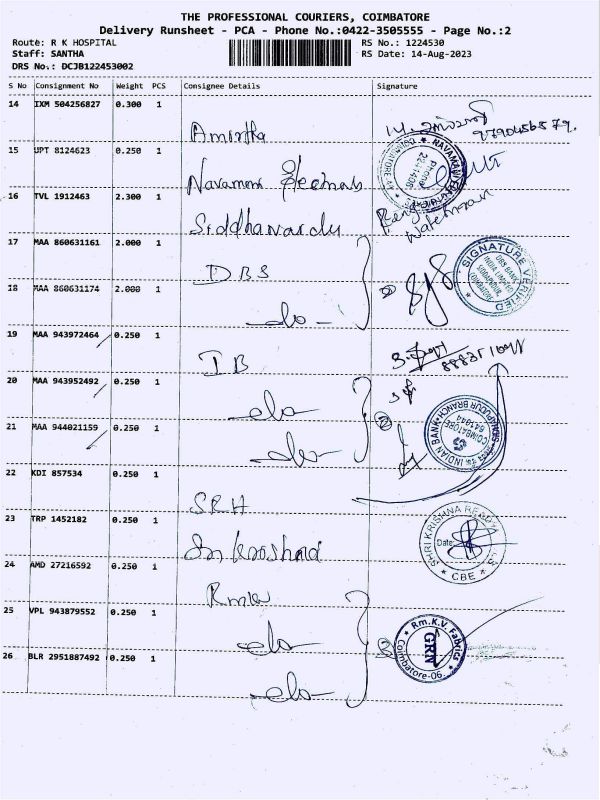 THE PROFESSIONAL COURIERS, COIMBATORE
Delivery Runsheet - PCA - Phone No.:0422-3505555 - Page No.:2
Route: R K HOSPITAL
Staff: SANTHA
DRS No.: DCJB122453002
RS No.: 1224530
RS Date: 14-Aug-2023
S No Consignment No Weight PCS Consignee Details Signature
14 IXM 504256827 0.300 1
Amirtha
15 UPT 8124623 0.250 1
Navamani
16 TVL 1912463 2.300 1
Siddhavardu
Watchman
17 MAA 860631161 2.000 1
DBS
SIGNATURE VERIFIED
DBS BANK
INDIA LIMITED
18 MAA 860631174 2.000 1
do
19 MAA 943972464 0.250 1
IB
20 MAA 943952492 0.250 1
do
21 MAA 944021159 0.250 1
do
INDIAN BANK
COIMBATORE
641044
22 KDI 857534 0.250 1
SRH
23 TRP 1452182 0.250 1
Sri Krishna
SHRI KRISHNA
Date:
CBE
24 AMD 27216592 0.250 1
Rmkv
25 VPL 943879552 0.250 1
do
Rm.K.V Fabrics
GRN
Coimbatore-06.
26 BLR 2951887492 0.250 1
do